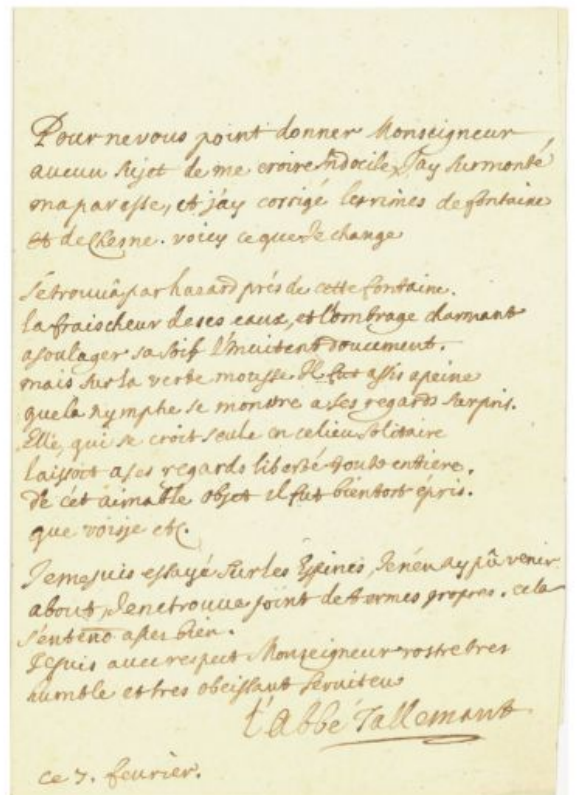 Pour ne vous point donner Monseigneur
aucun sujet de me croire indocile, J'ay surmonté
ma paresse, et j'ay corrigé les rimes de fontaine
et de Chesne. voicy ce que Je change
Se trouva par hazard prés de cette fontaine.
la fraischeur de ses eaux, et l'ombrage charmant
a soulager sa soif l'invitent doucement.
mais sur la verte mousse Il fut assis a peine
que la nymphe se monstre a ses regards surpris.
Elle, qui se croit seule en ce lieu solitaire
laissoit a ses regards liberté toute entiere.
de cét aimable objet il fut bientost épris.
que voisje etc.
Je me suis essayé sur les Epines, Je n'en ay pû venir
about, Je ne trouve point de termes propres. cela
s'entend assez bien.
Je suis avec respect Monseigneur vostre tres
humble et tres obeissant serviteur
l'Abbé Tallemant
ce 7. feurier.